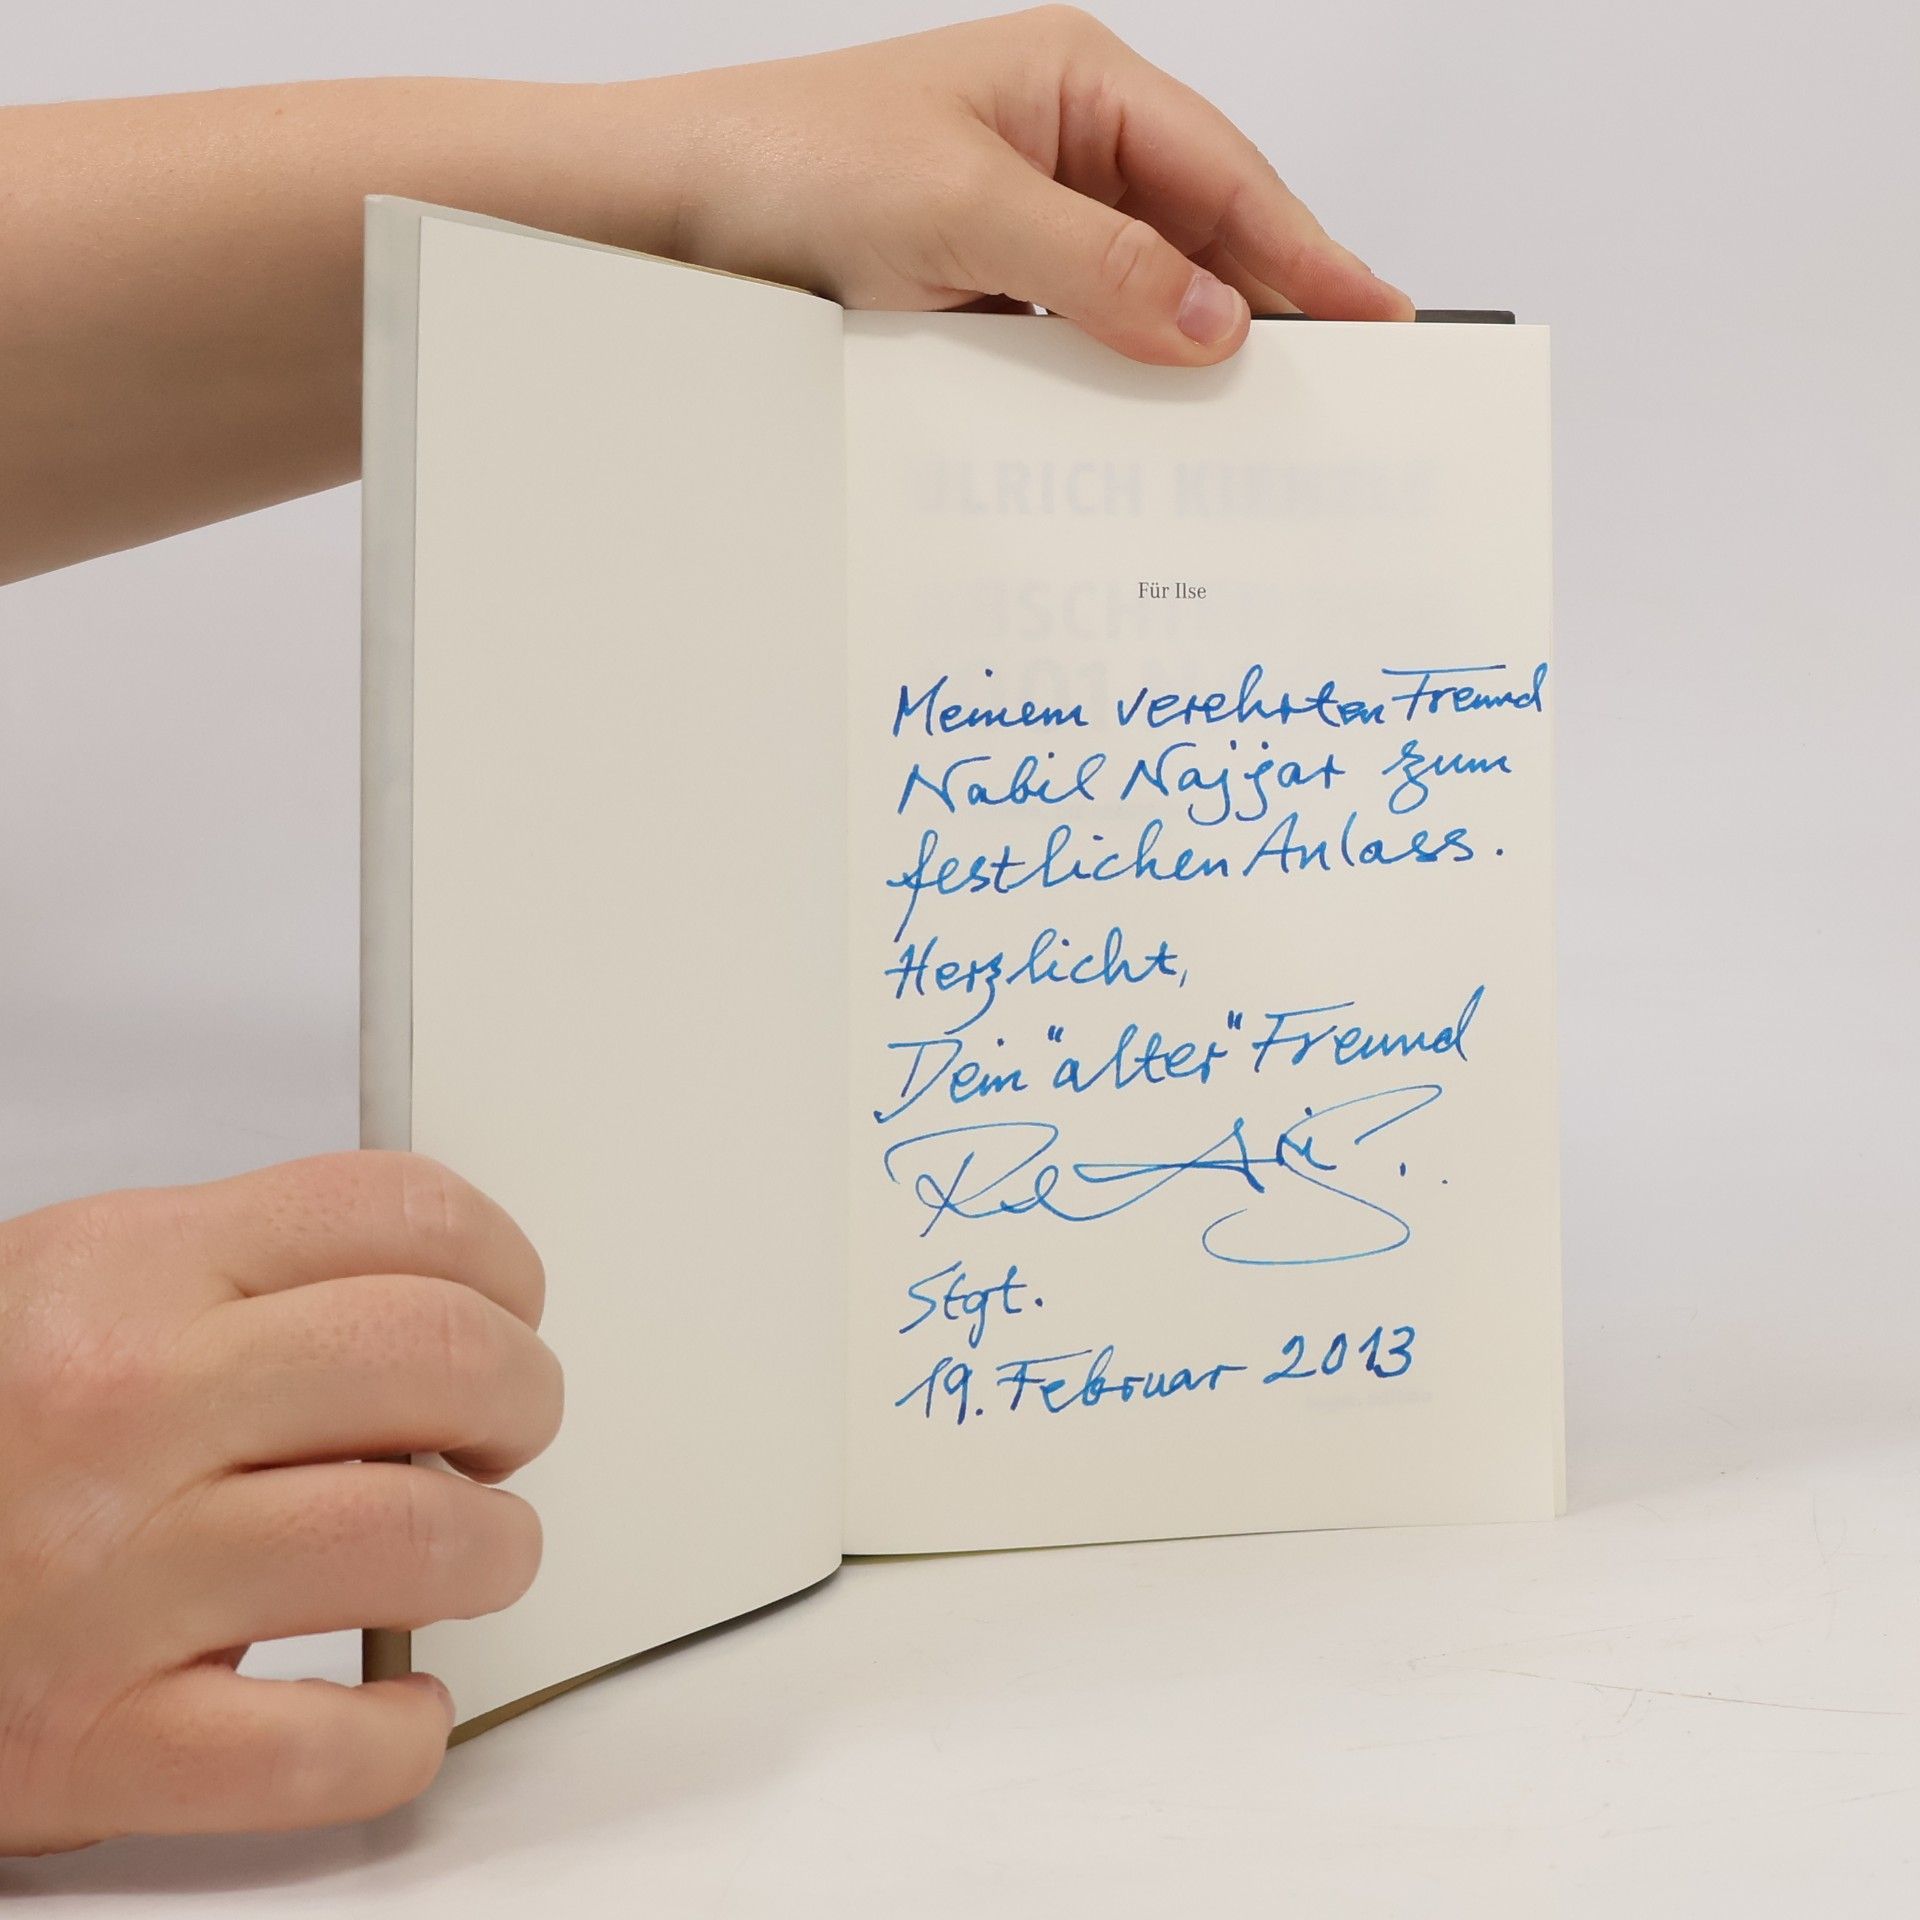 ULRICH
Für Ilse
Meinem verehrten Freund
Nabil Najjar zum
festlichen Anlass.
Herzlichst,
Dein "alter" Freund
Stgt.
19. Februar 2013